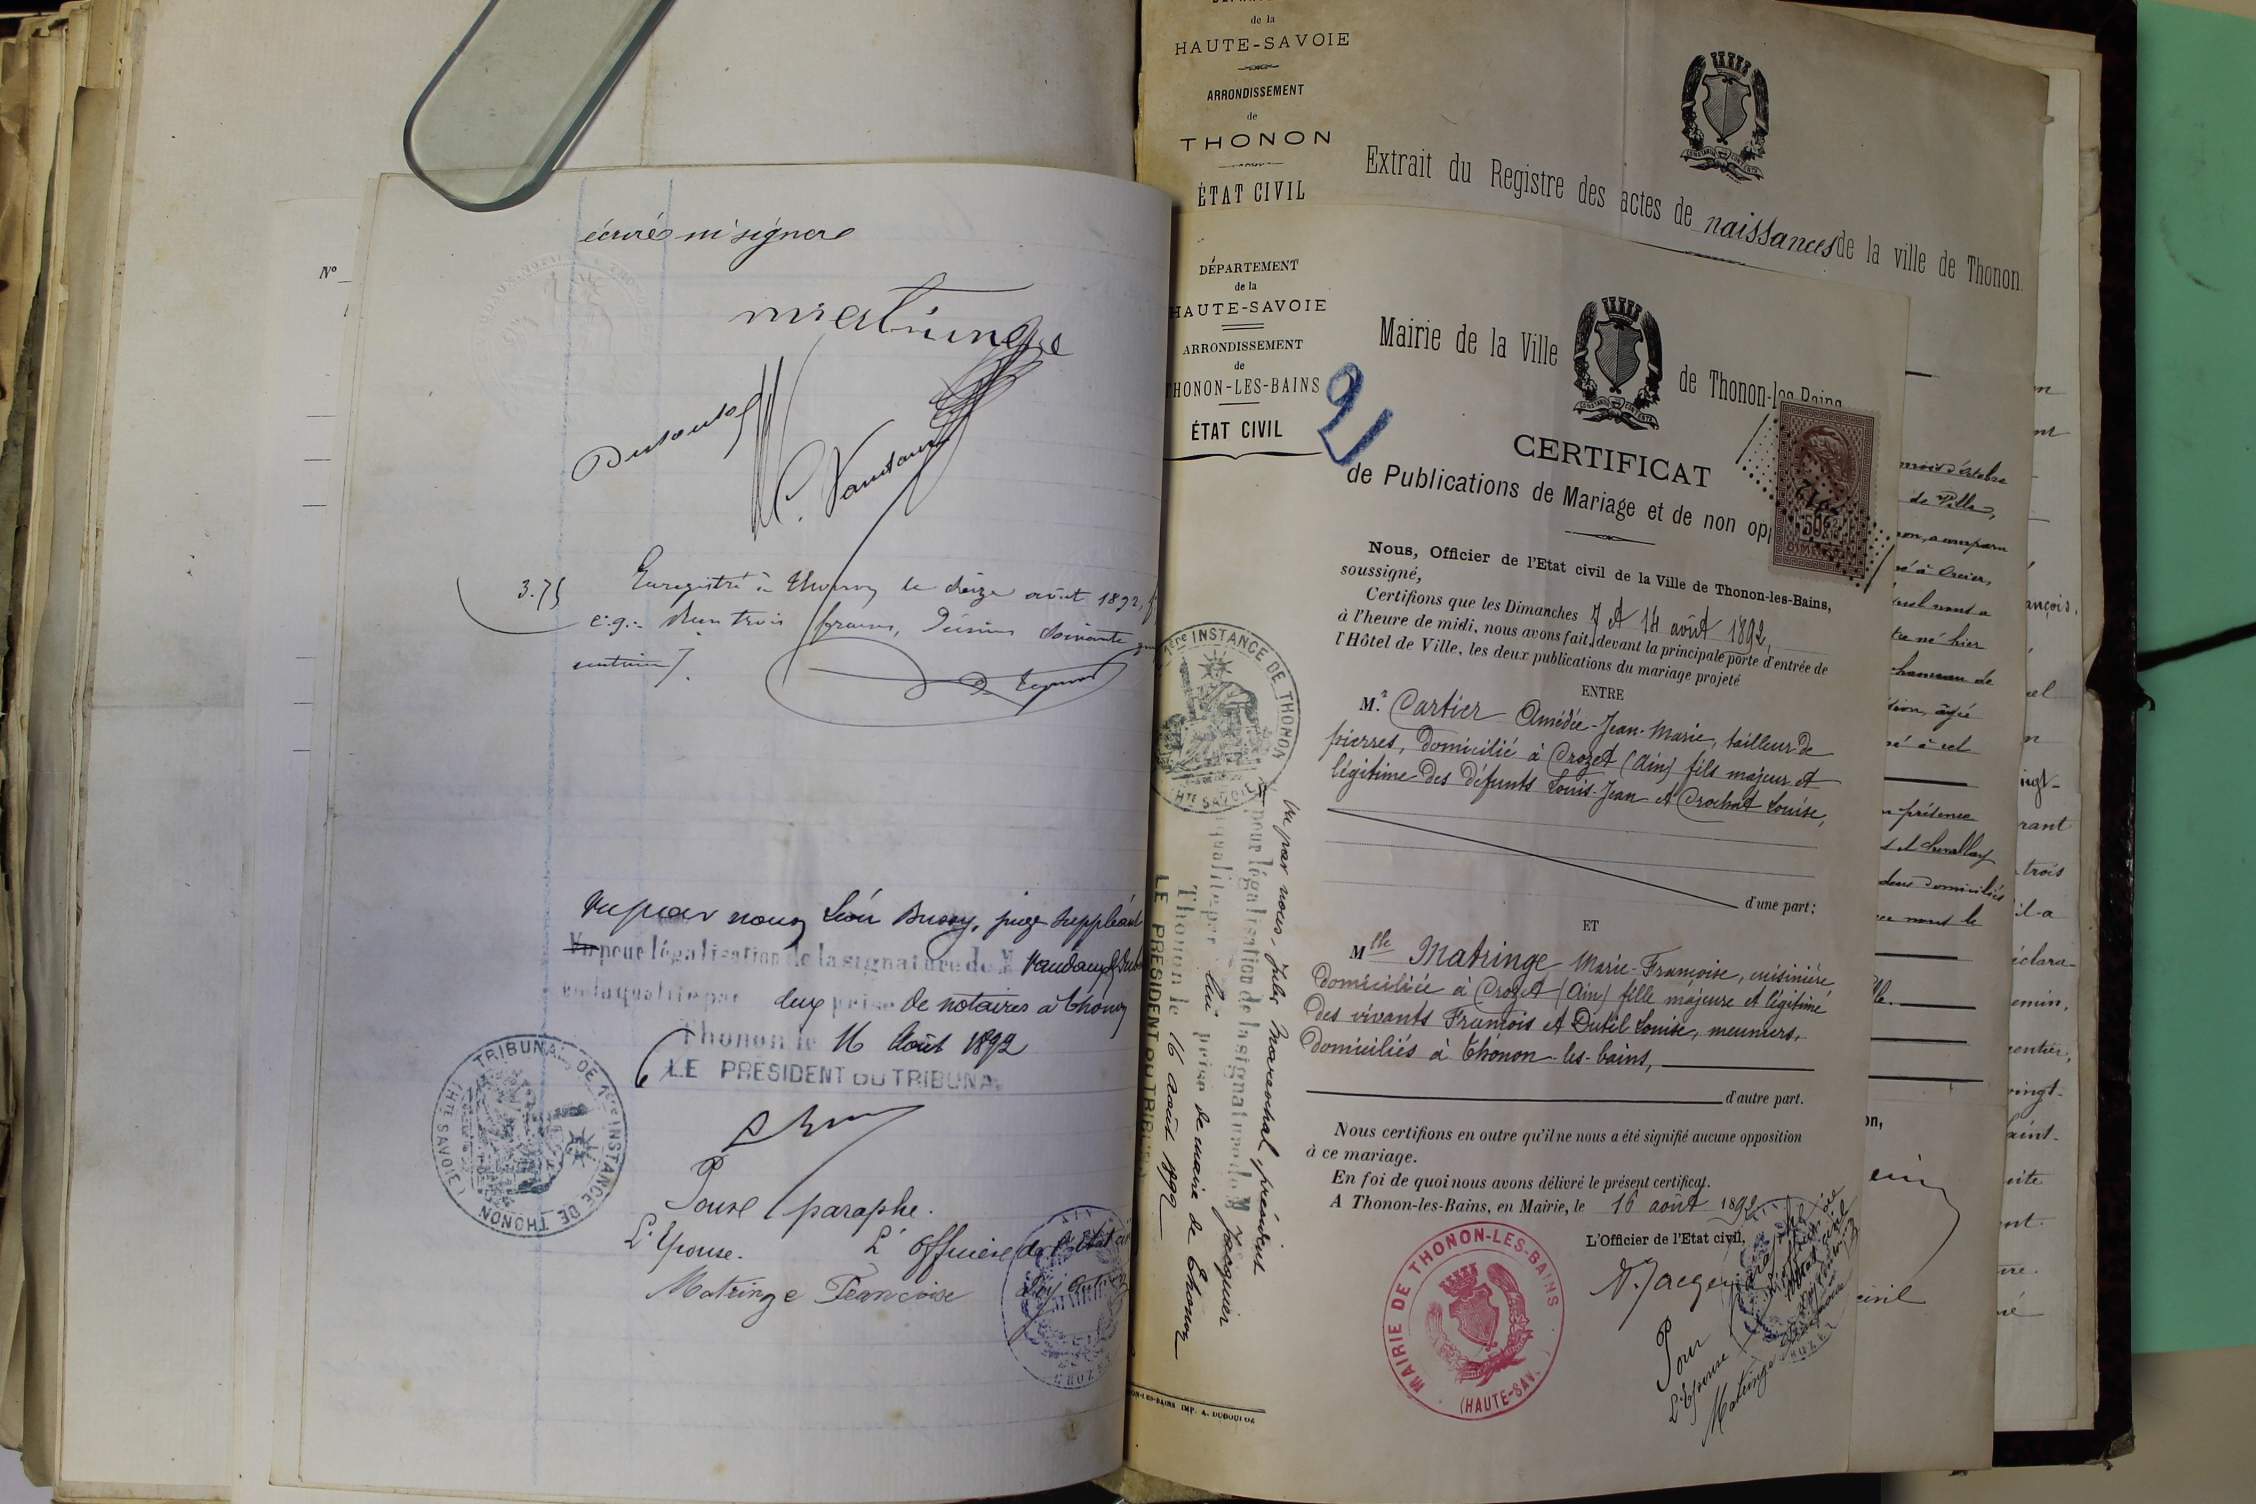 écrire ni signer
Matringe
Dutoulof
C. Vaudaux
3.75
Enregistré à Thonon le seize août 1892, f°
c. g. Reçu trois francs, Décimes soixante quinze
centimes.
Vu par nous Léon Bussy, juge suppléant
Vu pour légalisation de la signature de M Vaudaux &
en la qualité par eux prise de notaires à Thonon
Thonon le 16 Août 1892
LE PRESIDENT DU TRIBUNAL
TRIBUNAL DE 1ère INSTANCE DE THONON
(HTE SAVOIE)
Pour paraphe.
L'Epouse. L'officier de l'Etat civil
Matringe Francoise
N°
de la
HAUTE-SAVOIE
ARRONDISSEMENT
de
THONON
ÉTAT CIVIL
Extrait du Registre des actes de naissances de la ville de Thonon
DÉPARTEMENT
de la
HAUTE-SAVOIE
ARRONDISSEMENT
de
THONON-LES-BAINS
ÉTAT CIVIL
21
Mairie de la Ville de Thonon-les-Bains
CERTIFICAT
de Publications de Mariage et de non opp
50c
Nous, Officier de l'Etat civil de la Ville de Thonon-les-Bains,
soussigné,
Certifions que les Dimanches 7 et 14 août 1892,
à l'heure de midi, nous avons fait, devant la principale porte d'entrée de
l'Hôtel de Ville, les deux publications du mariage projeté
ENTRE
M.r Cartier Amédée-Jean-Marie, tailleur de
pierres, domicilié à Crozet (Ain) fils majeur et
légitime des défunts Louis-Jean et Crochat Louise,
d'une part;
ET
Mlle Matringe Marie-Françoise, cuisinière,
domiciliée à Crozet (Ain) fille majeure et légitime
des vivants François et Dutil Louise, meuniers,
domiciliés à Thonon-les-bains,
d'autre part.
Nous certifions en outre qu'il ne nous a été signifié aucune opposition
à ce mariage.
En foi de quoi nous avons délivré le présent certificat.
A Thonon-les-Bains, en Mairie, le 16 août 1892
L'Officier de l'Etat civil,
MAIRIE DE THONON-LES-BAINS
(HAUTE-SAV.
Pour paraphe
L'Epouse
Matringe
1ère INSTANCE DE THONON
HTE SAVOIE
Vu par nous, Jules Marechal, président
pour légalisation de la signature de M Jacquier
qualité par lui prise de maire de Thonon
Thonon le 16 août 1892
LE PRESIDENT DU TRIBUNAL
THONON-LES-BAINS IMP. A. DUBOULOZ
mois d'octobre
de Ville,
né hier
en présence
et Chevallay
domiciliés